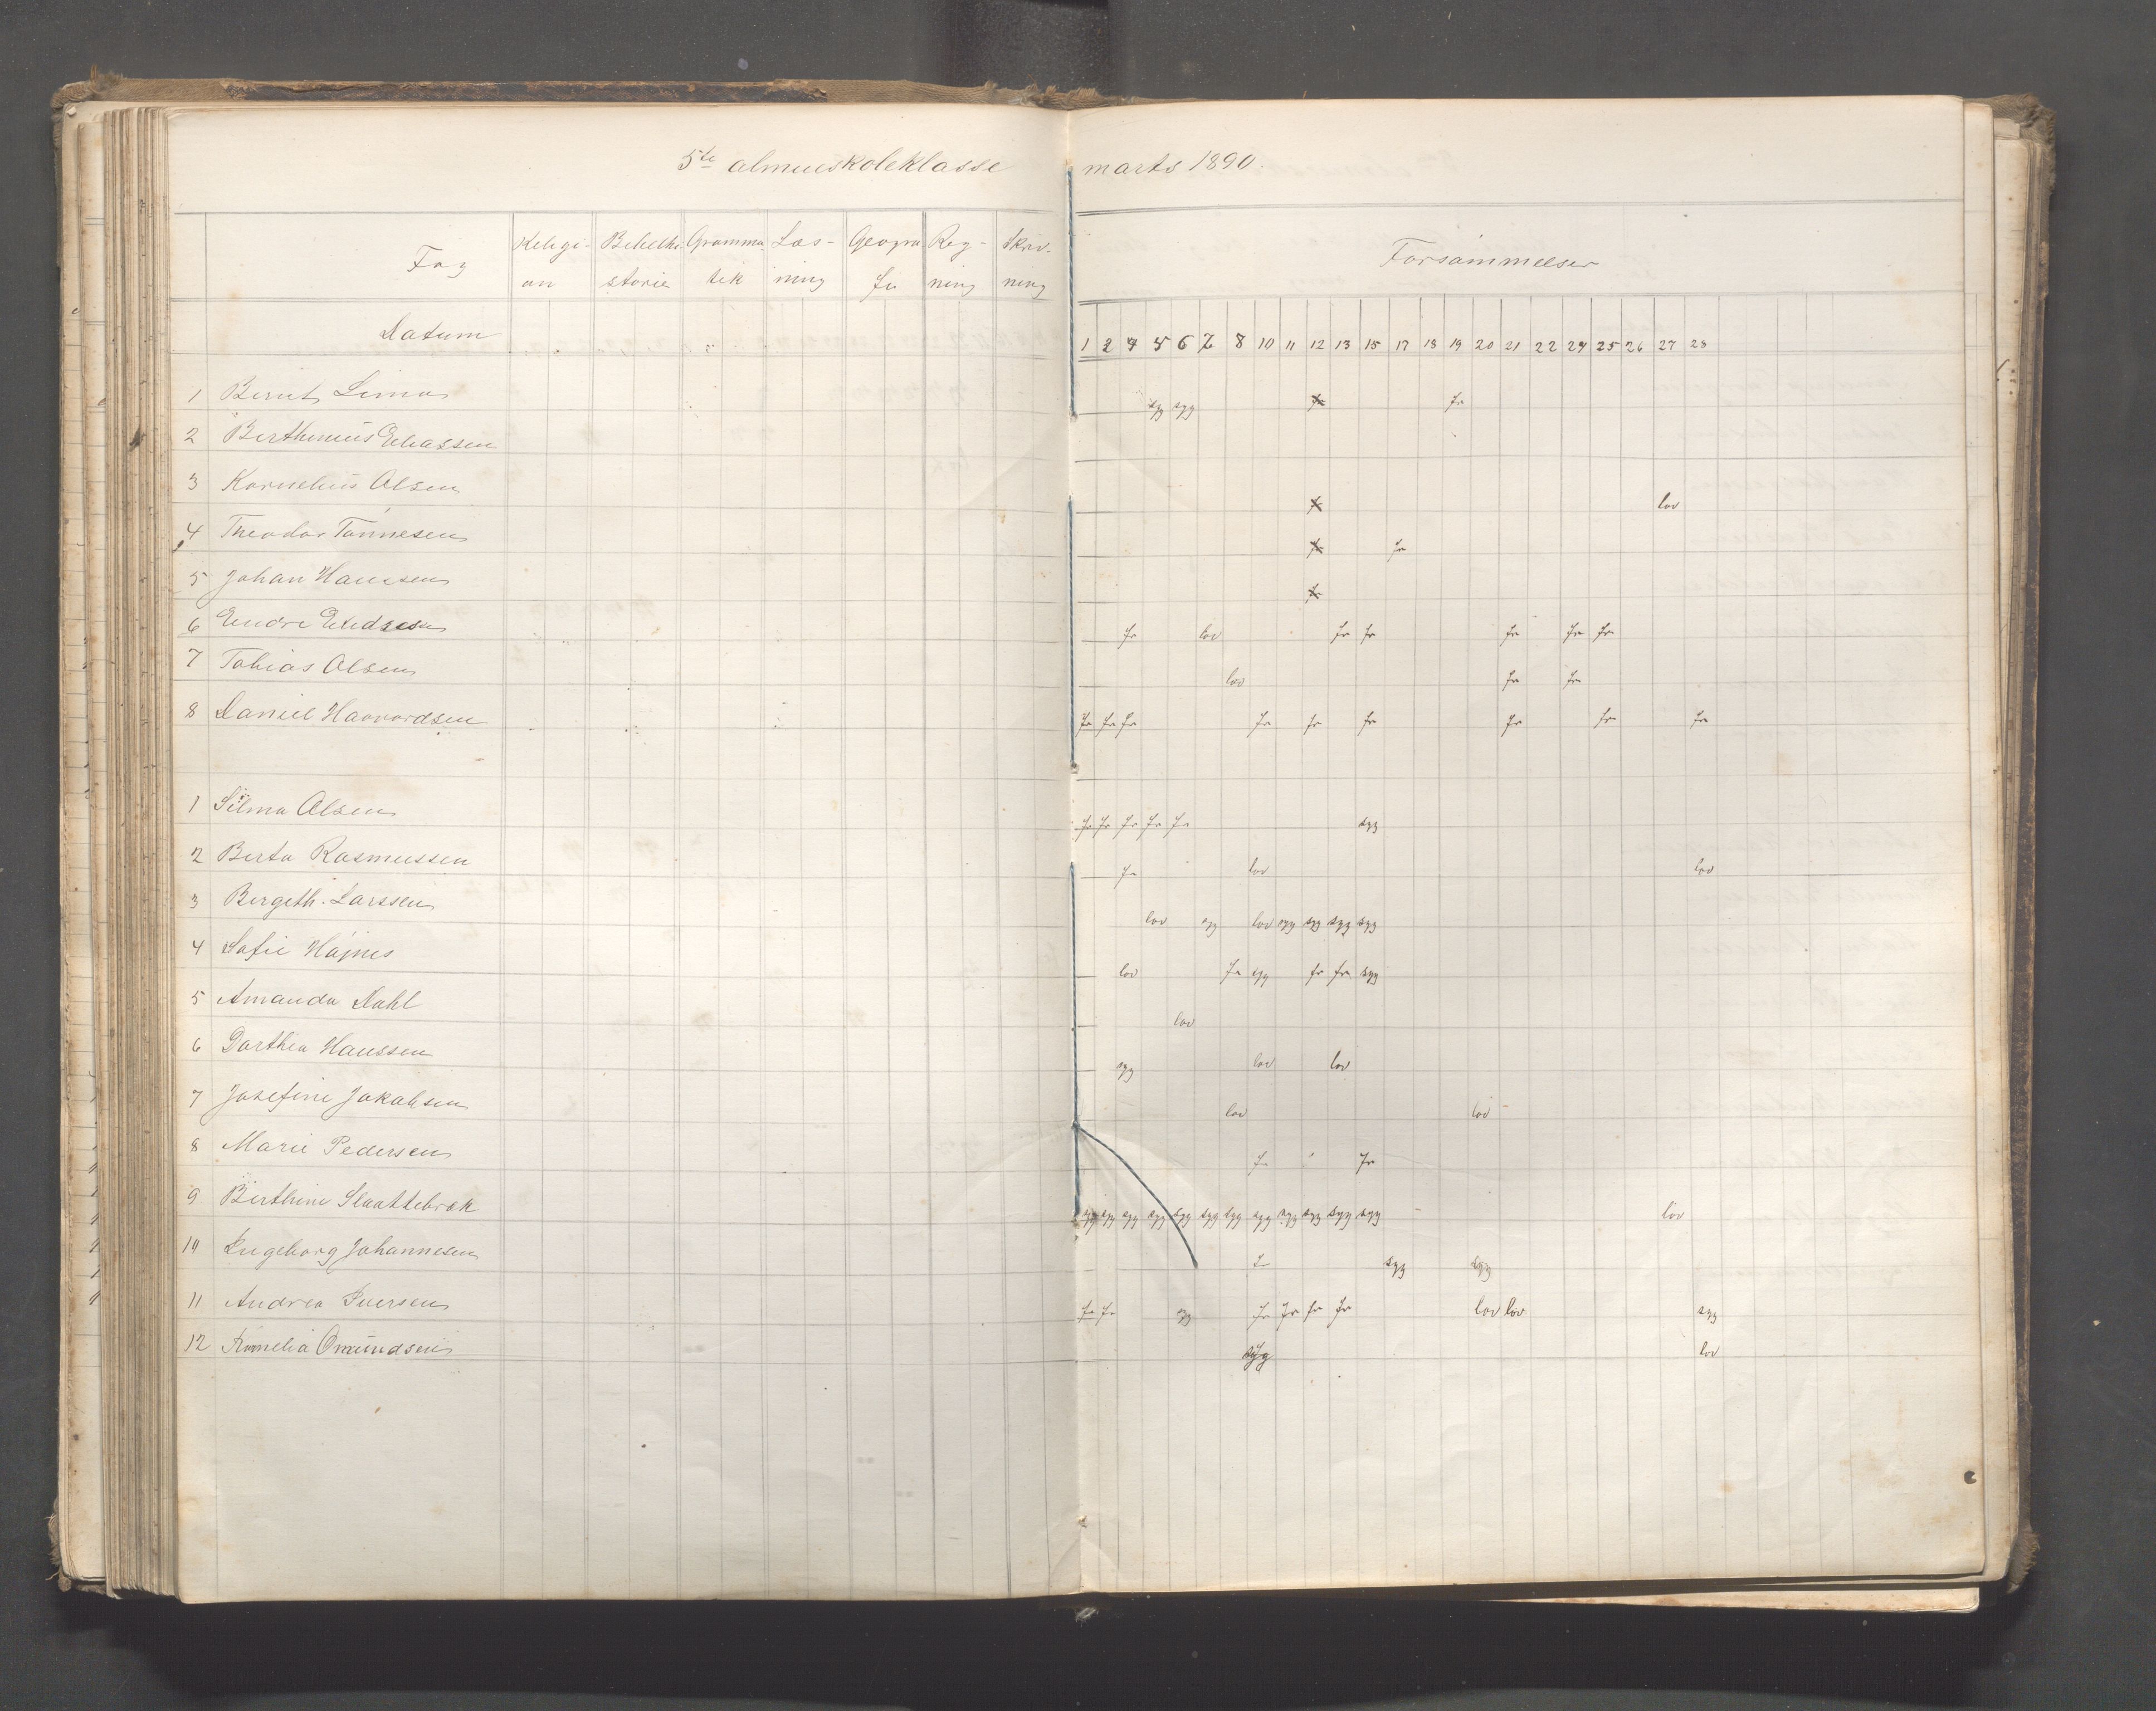 5te almueskoleklasse marts 1890.
Fag Religi- Bibelhi- Gramma Læs- Geogra Reg- Skriv-
on storie tik ning fi ning ning
Forsømmelser
Datum 1 2 4 5 6 7 8 10 11 12 13 15 17 18 19 20 21 22 24 25 26 27 28
1 Berut Lima syg syg fr fr
2 Berthinius Eliassen
3 Kornelius Olsen fr lov
4 Theodor Tønnesen fr fr
5 Johan Hanssen fr
6 Endre Endresen fr lov fr fr fr fr fr
7 Tobias Olsen lov fr fr
8 Daniel Haavardsen fr fr fr fr fr fr fr fr fr
1 Silma Olsen fr fr fr fr fr syg
2 Berta Rasmussen fr lov lov
3 Bergeth. Larssen lov syg lov syg syg syg syg
4 Sofie Højnes lov fr syg fr fr syg
5 Amanda Dahl lov
6 Dorthea Hanssen syg lov lov
7 Josefine Jakobsen lov lov
8 Marie Pedersen fr fr
9 Berthine Slaattebrak syg syg syg syg syg syg syg syg syg syg syg syg lov
10 Ingeborg Johannesen fr syg syg
11 Andrea Iversen fr fr syg fr fr fr fr lov lov syg
12 Kornelia Omundsen syg lov